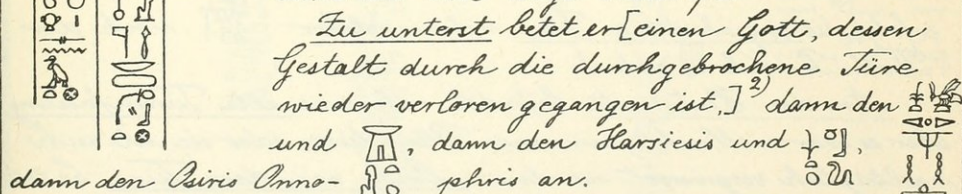 Zu unterst betet er [einen Gott, dessen
Gestalt durch die durchgebrochene Türe
wieder verloren gegangen ist,]²⁾ dann den
und , dann den Harsiesis und ,
dann den Osiris Onno- phris an.